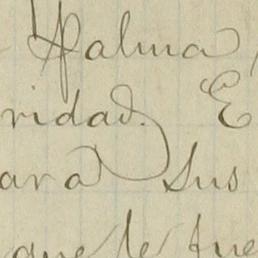 Palma
ridad. E
ara sus
que le fue